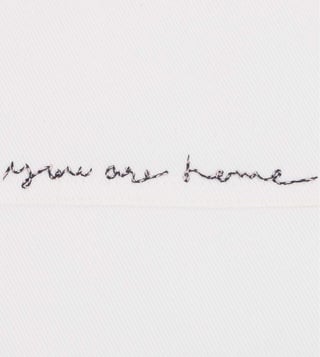 you are home